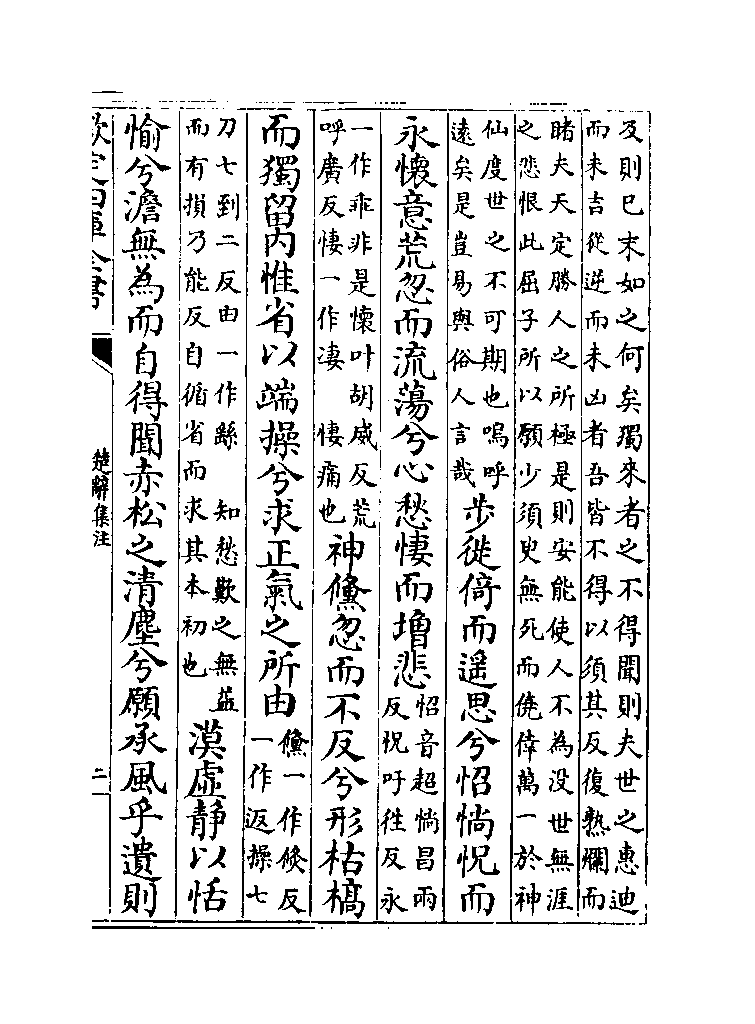 及則已末如之何矣獨來者之不得聞則夫世之惠迪
而未吉從逆而未凶者吾皆不得以須其反復熟爛而
睹夫天定勝人之所極是則安能使人不為没世無涯
之悲恨此屈子所以願少須臾無死而僥倖萬一於神
仙度世之不可期也嗚呼
遠矣是豈易與俗人言哉
步徙倚而遥思兮怊惝怳而
永懷意荒忽而流蕩兮心愁悽而増悲
怊音超惝昌兩
反怳吁往反永
一作乖非是懷叶胡威反荒
呼廣反悽一作凄 悽痛也
神儵忽而不反兮形枯槁
而獨留内惟省以端操兮求正氣之所由
儵一作倐反
一作返操七
刀七到二反由一作繇 知愁歎之無益
而有損乃能反自循省而求其本初也
漠虚静以恬
愉兮澹無為而自得聞赤松之清塵兮願承風乎遺則
欽定四庫全書
楚辭集注
二